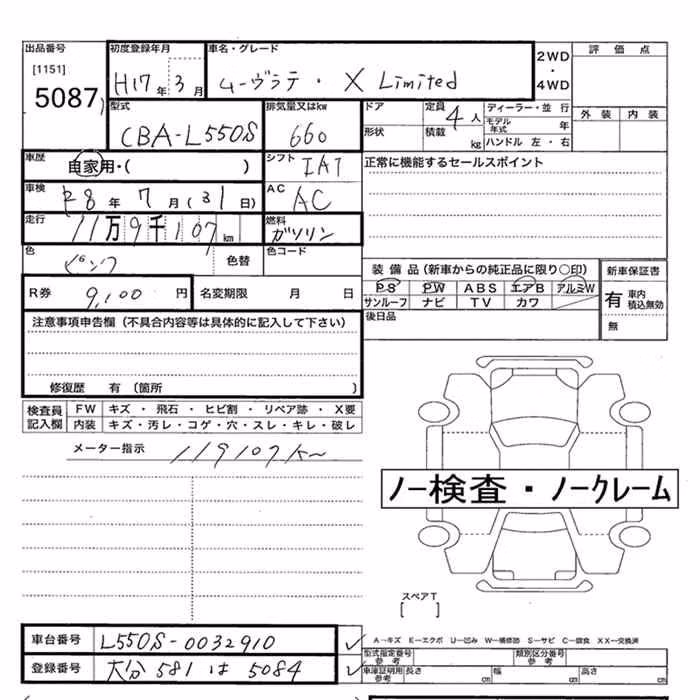 出品番号 初度登録年月 車名・グレード 2WD ・ 4WD 評価点
[1151] 5087 H17年3月 ムーヴラテ・X Limited
外装 内装
型式 排気量又はkw ドア 定員 4人 ディーラー・並行
CBA-L550S 660 形状 積載 kg モデル年式 年
ハンドル 左・右
車歴 自家用・( ) シフト IAT 正常に機能するセールスポイント
車検 R8年7月(31日) AC AC
走行 11万9千107km 燃料 ガソリン
色 ピンク 色替 色コード
装備品(新車からの純正品に限り○印) 新車保証書
R券 9,100円 名変期限 月 日 PS PW ABS エアB アルミW 有 車内積込無効
サンルーフ ナビ TV カワ
注意事項申告欄(不具合内容等は具体的に記入して下さい) 後日品 無
修復歴 有(箇所 )
検査員記入欄 FW キズ・飛石・ヒビ割・リペア跡・X要
内装 キズ・汚レ・コゲ・穴・スレ・キレ・破レ
メーター指示 119107K
ノー検査・ノークレーム
スペアT
[ ]
車台番号 L550S-0032910 A-キズ E-エクボ U-凹み W-補修跡 S-サビ C-腐食 XX-交換済
型式指定番号 参考 類別区分番号 参考
登録番号 大分 581 は 5084 車庫証明用 参考 長さ cm 幅 cm 高さ cm